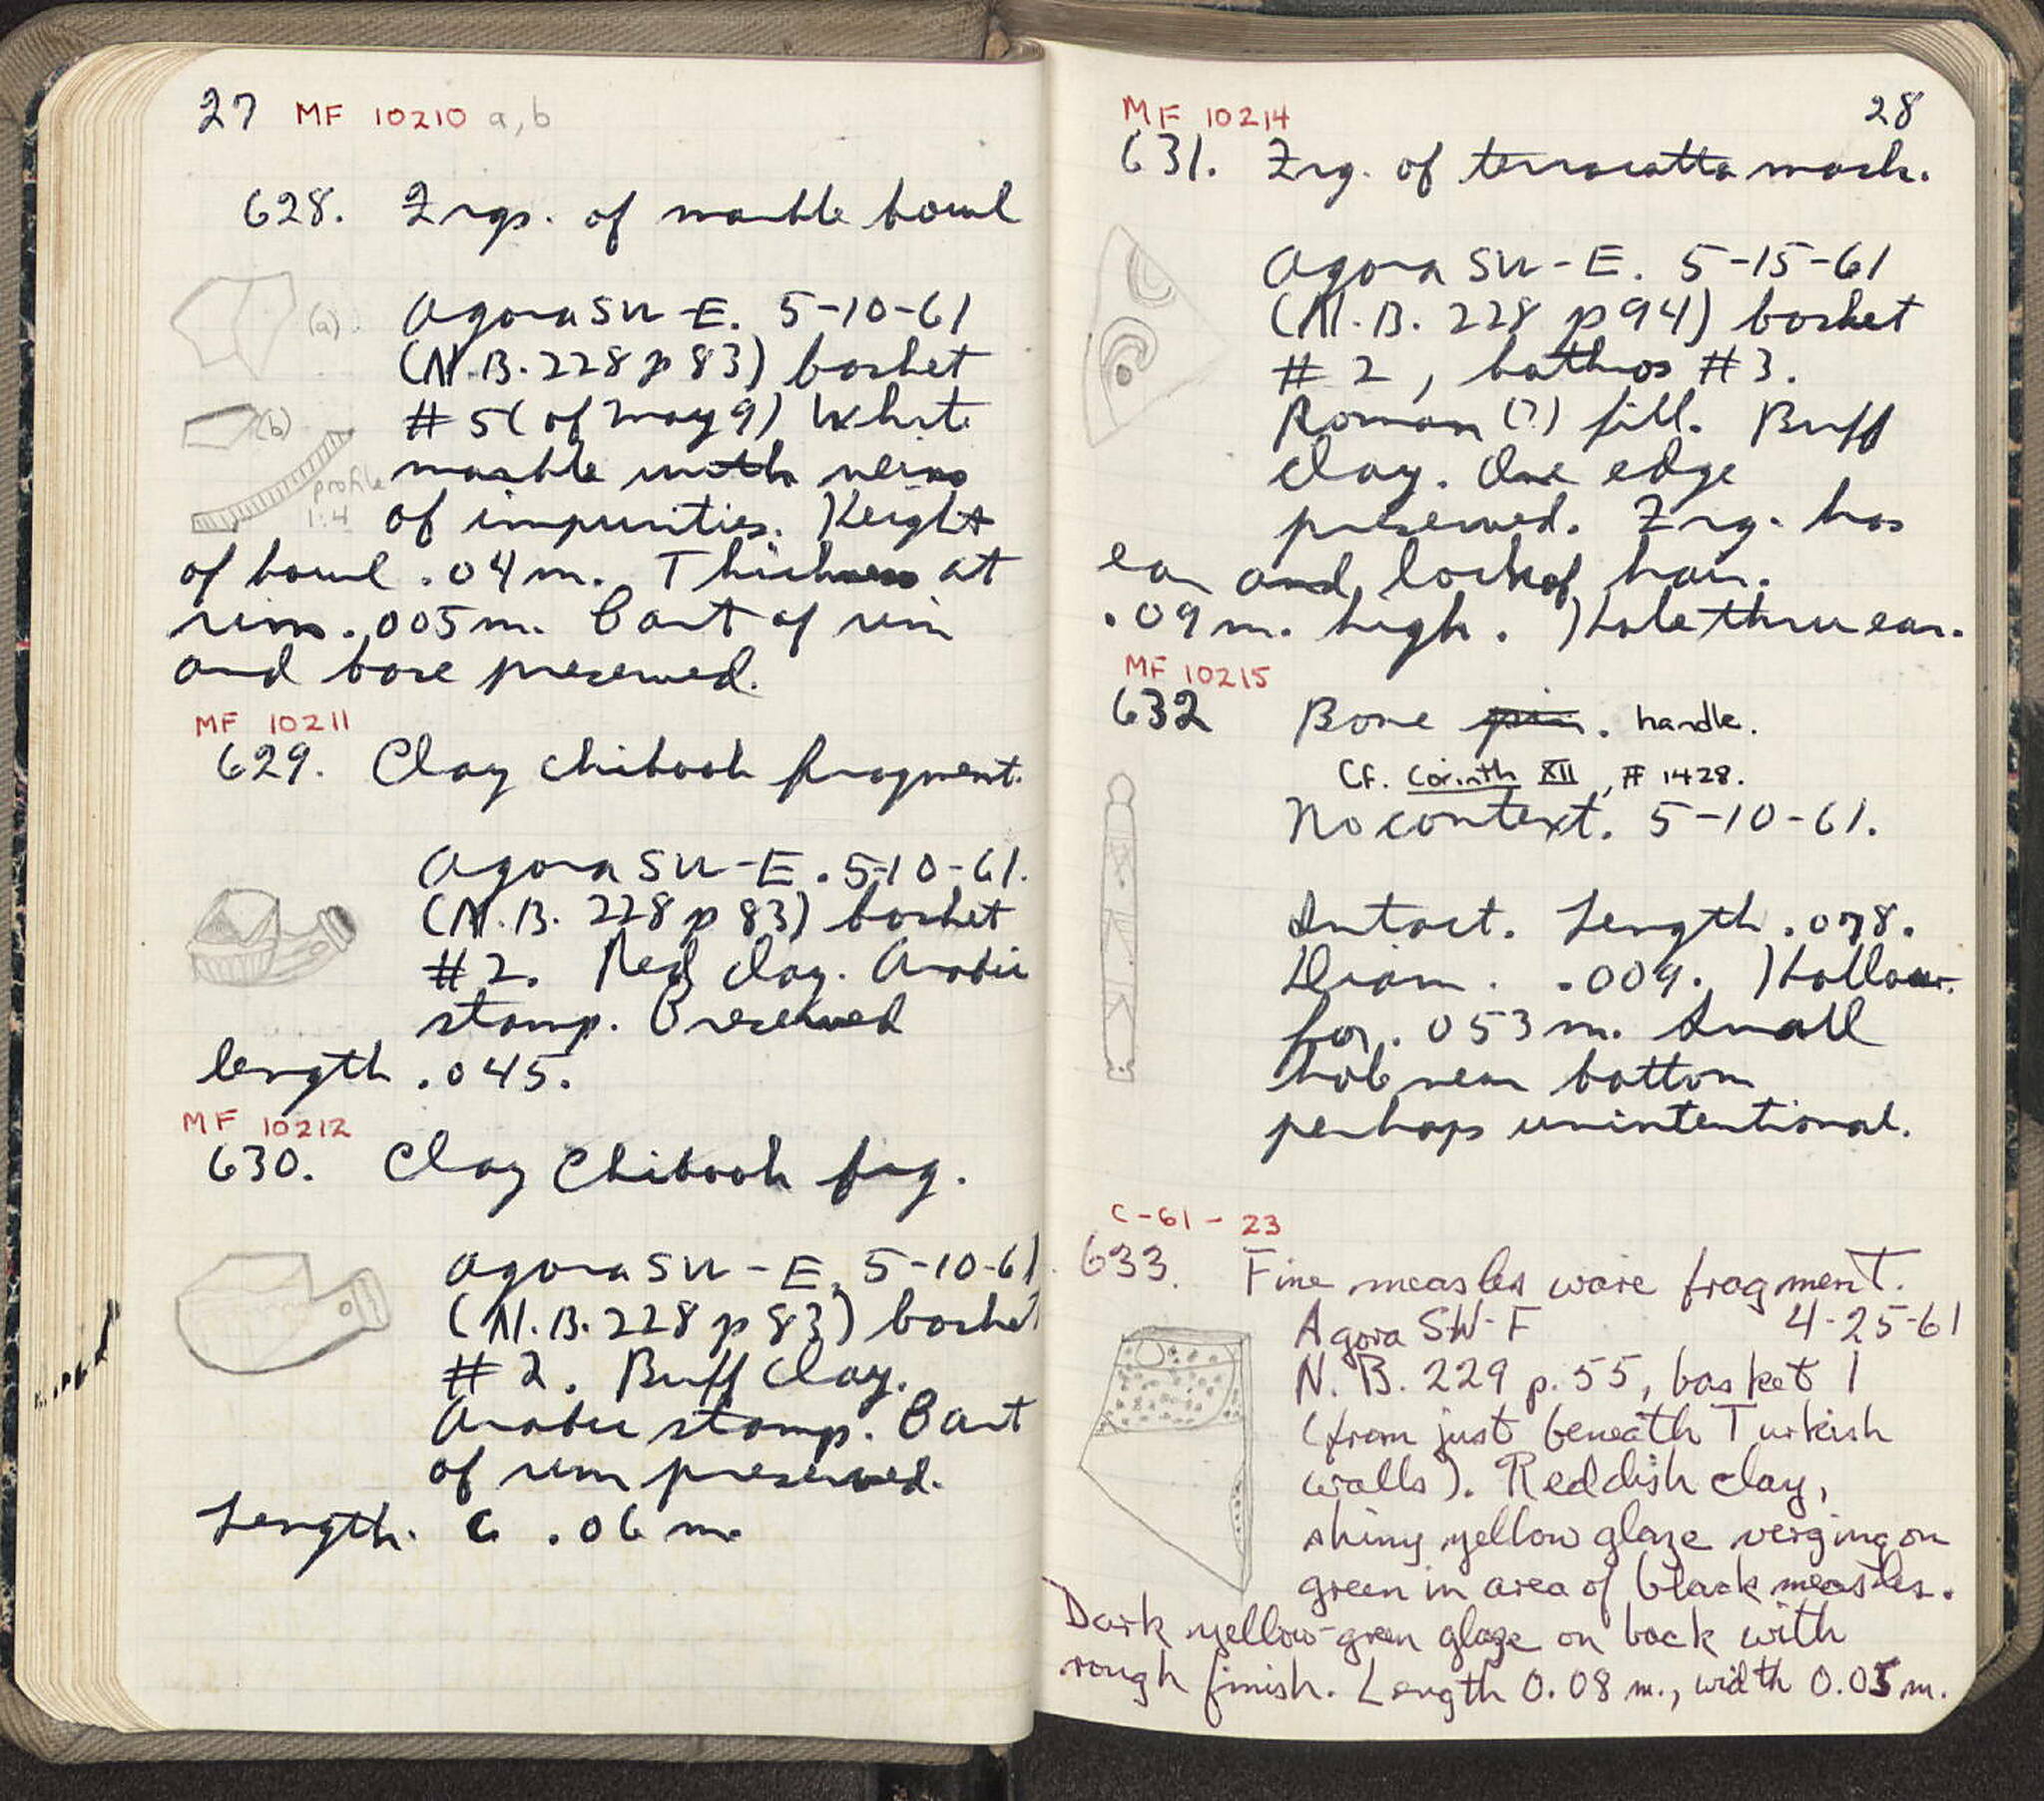 27 MF 10210 a, b
628. Frgs. of marble bowl
Agora SW-E. 5-10-61
(N.B. 228 p 83) basket
#5 (of May 9) White
marble with veins
of impurities. Height
of bowl .04 m. Thickness at
rim .005 m. Part of rim
and base preserved.
(a)
(b)
profile
1:4
MF 10211
629. Clay chibouk fragment.
Agora SW-E. 5-10-61.
(N.B. 228 p 83) basket
#2. Red clay. Arabic
stamp. Preserved
length .045.
MF 10212
630. Clay Chibouk frg.
Agora SW-E. 5-10-61.
(N.B. 228 p 83) basket
#2. Buff clay.
Arabic stamp. Part
of rim preserved.
Length. c .06 m
28
MF 10214
631. Frg. of terracotta mask.
Agora SW-E. 5-15-61
(N.B. 228 p 94) basket
#2, bothros #3.
Roman (?) fill. Buff
clay. One edge
preserved. Frg. has
ear and lock of hair.
.09 m. high. Hole thru ear.
MF 10215
632 Bone pin. handle.
Cf. Corinth XII, # 1428.
No context. 5-10-61.
Intact. Length .078.
Diam. .009. Hollow
for .053 m. Small
hole near bottom
perhaps unintentional.
C-61-23
633. Fine measles ware fragment.
Agora SW-F 4-25-61
N.B. 229 p. 55, basket 1
(from just beneath Turkish
walls). Reddish clay,
shiny yellow glaze verging on
green in area of black measles.
Dark yellow-green glaze on back with
rough finish. Length 0.08 m., width 0.05 m.